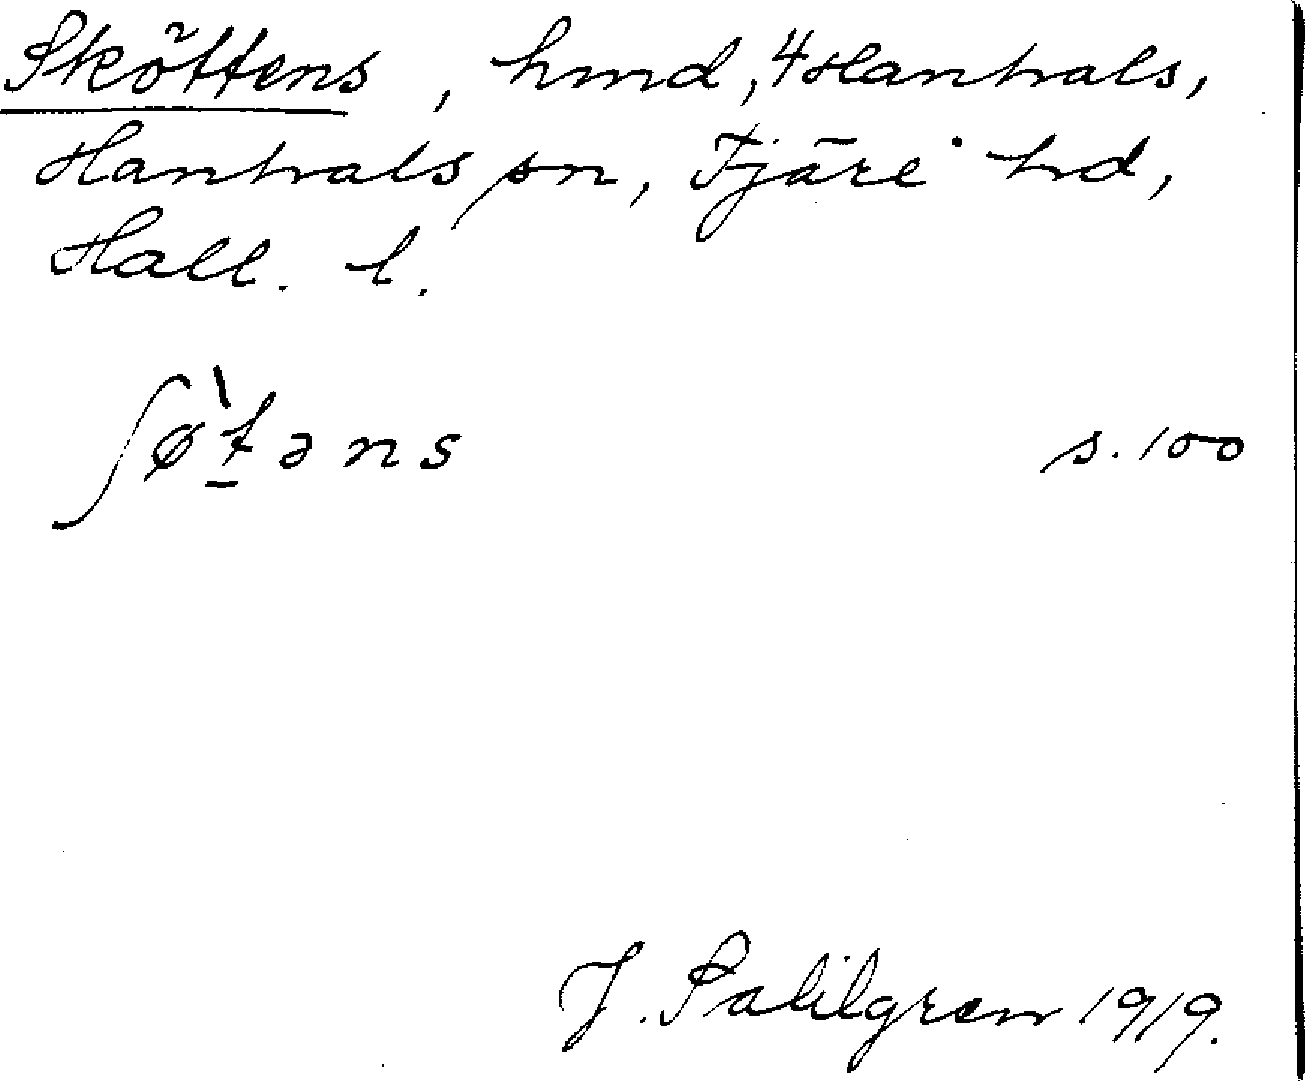 Sköttens, hmd, 4 Hanhals,
Hanhals sn, Fjäre hd,
Hall. l.
ʃø`t̠əns s. 100
J. Sahlgren 1919.